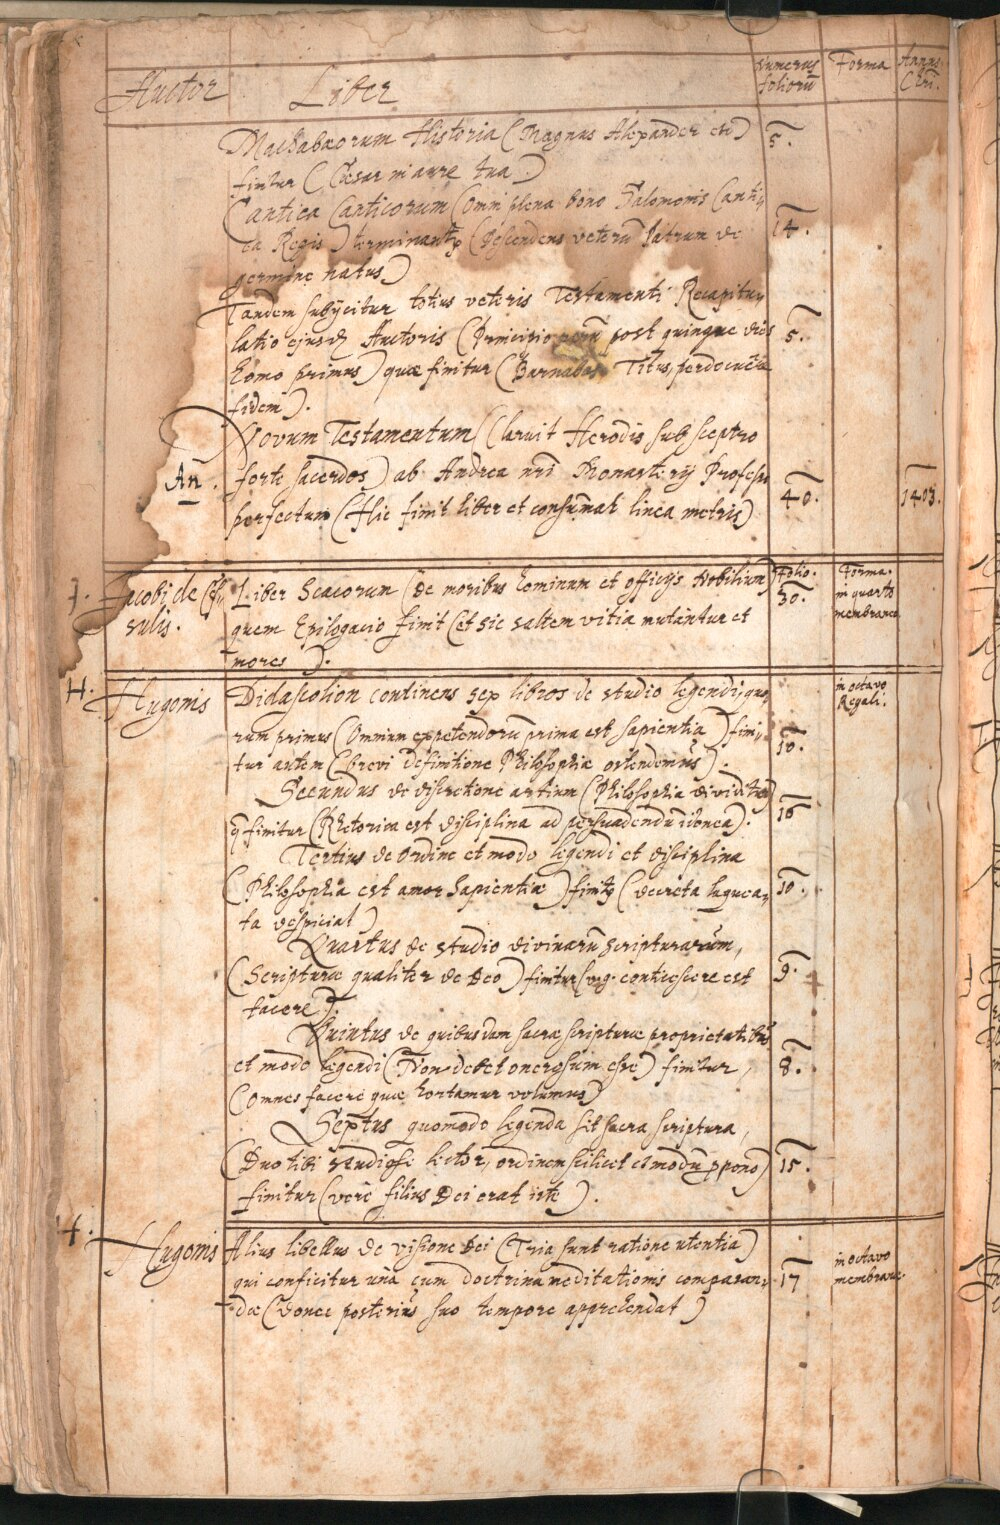 Auctor Liber Numerus foliorū Forma Annus Chri.
Machabaeorum Historia (Magnus Alexander etc)
finitur (Caesar in aure tua.) 5.
Cantica Canticorum (Omni plena bono Salomonis Canti-
ca Regis) terminantr (Descendens veterū Patrum de 14.
germine natus)
Tandem subijcitur totius veteris Testamenti Recapitu-
latio ejusd Auctoris (Principio post quinque dies 5.
homo primus) quae finitur (Barnabas Titus perdocuēre
fidem).
Novum Testamentum (Claruit Herodis sub sceptro
An. forte sacerdos) ab Andrea nri Monasterij Professo 40. 1403.
perfectum (Hic finit liber et consum̄at linea metris)
J. Jacobi de Cess- Liber Scacorum (De moribus hominum et officijs Nobilium) Folio. Forma.
sulis. quem Epilogacio finit (et sic saltem vitia mutantur et 30. in quarto
mores). membranea
H. Hugonis Didascolion continens sex libros de studio legendi, quo- in octavo
rum primus (Omnium expetendorū prima est sapientia) fini- 10. Regali.
tur autem (brevi definitione Philosophiae ostendemus).
Secundus de discretione artium (Philosophia dividitur) 16
q finitur (Rhetorica est disciplina ad persuadendū idonea).
Tertius de ordine et modo legendi et disciplina
(Philosophia est amor Sapientiae) finitr (decreta laquea- 10.
ta despiciat)
Quartus de studio divinarū scripturarum,
(Scripturae qualiter de Deo) finitur (conticescere est 9.
tacere).
Quintus de quibusdam sacrae scripturae proprietatibus
et modo legendi (Non debet onerosum esse) finitur, 8.
(omnes facere quae hortamur volumus)
Sextus quomodo legenda sit sacra scriptura,
(Duo tibi studiose lector, ordinem scilicet et modū ppono) 15.
finitur (vere filius Dei erat iste).
H. Hugonis Alius libellus de visione Dei (Tria sunt ratione utentia) in octavo
qui conficitur una cum doctrina meditationis comparan- 17 membrana
dae (donec posterius suo tempore apprehendat)